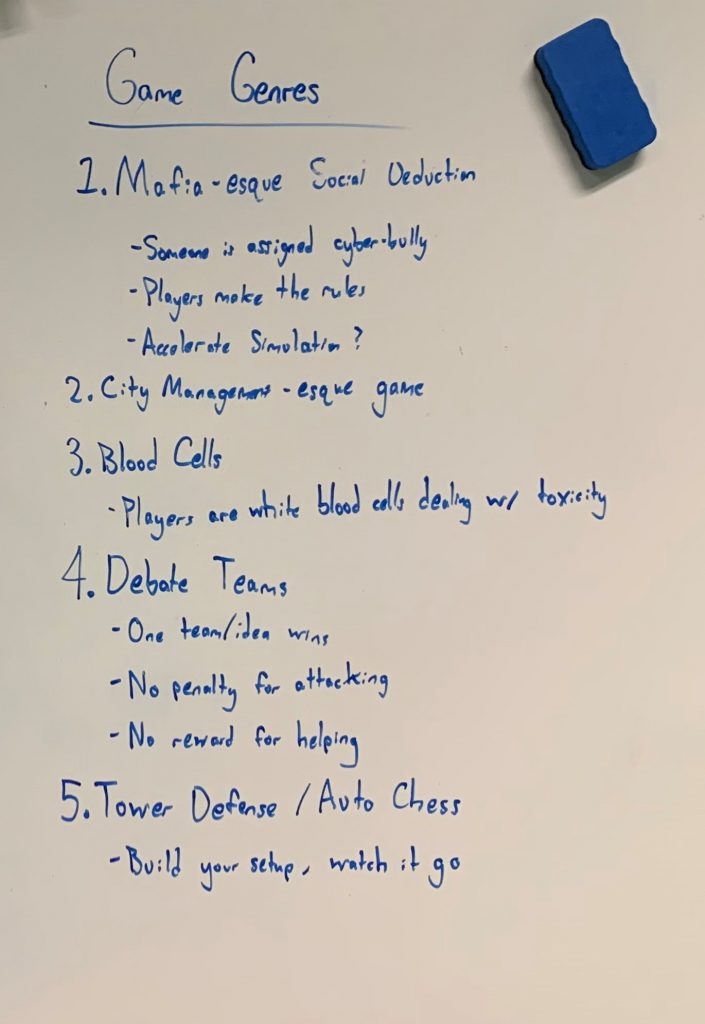 Game Genres
1. Mafia-esque Social Deduction
- Someone is assigned cyber-bully
- Players make the rules
- Accelerate Simulation?
2. City Management-esque game
3. Blood Cells
- Players are white blood cells dealing w/ toxicity
4. Debate Teams
- One team/idea wins
- No penalty for attacking
- No reward for helping
5. Tower Defense / Auto Chess
- Build your setup, watch it go